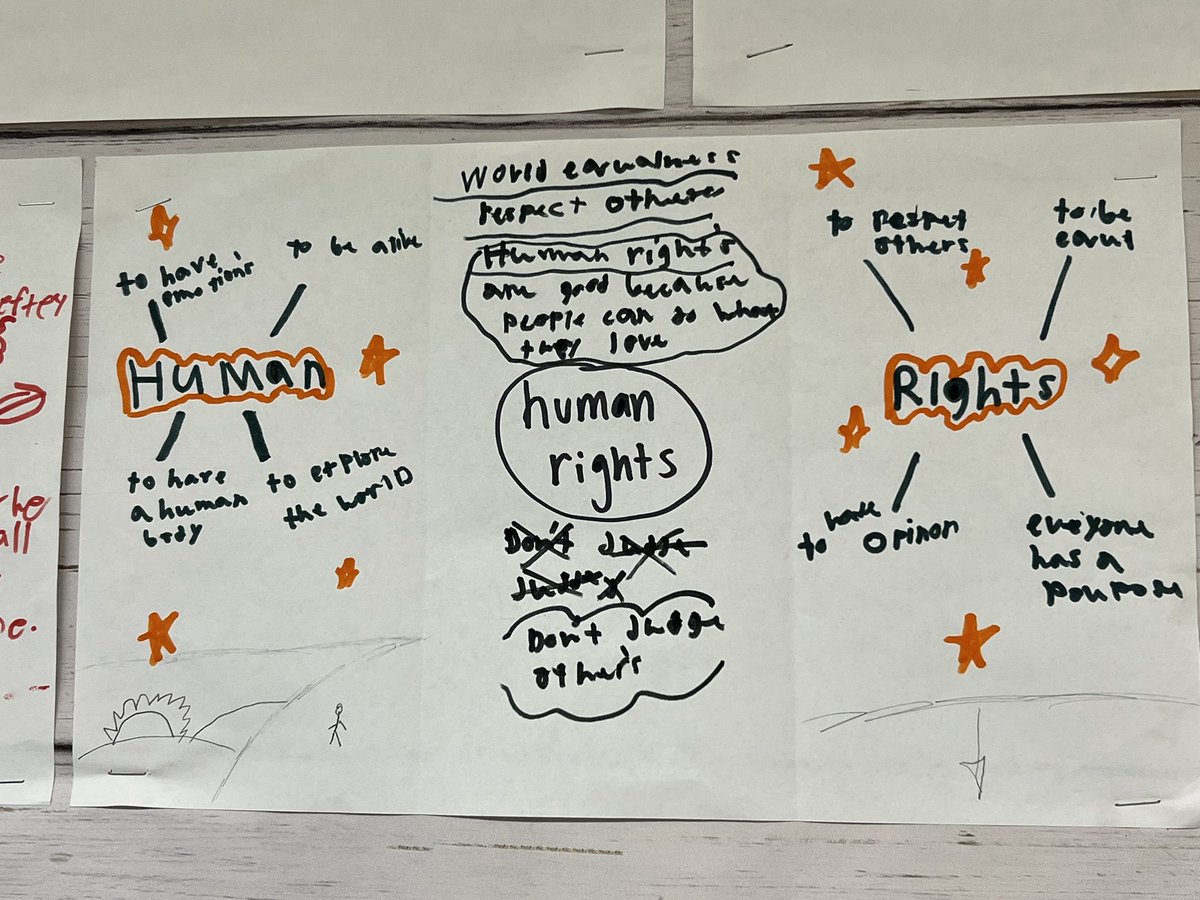 eftey
he
all
e.
to have
emotion's
to be alive
Human
to have
a human
body
to explore
the world
World equalness
respect others
Human right's
are good because
people can do what
they love
human
rights
Don't Judge
Don't Judge
other's
to respect
others
to be
equal
Rights
to have
opinon
everyone
has a
pourpose